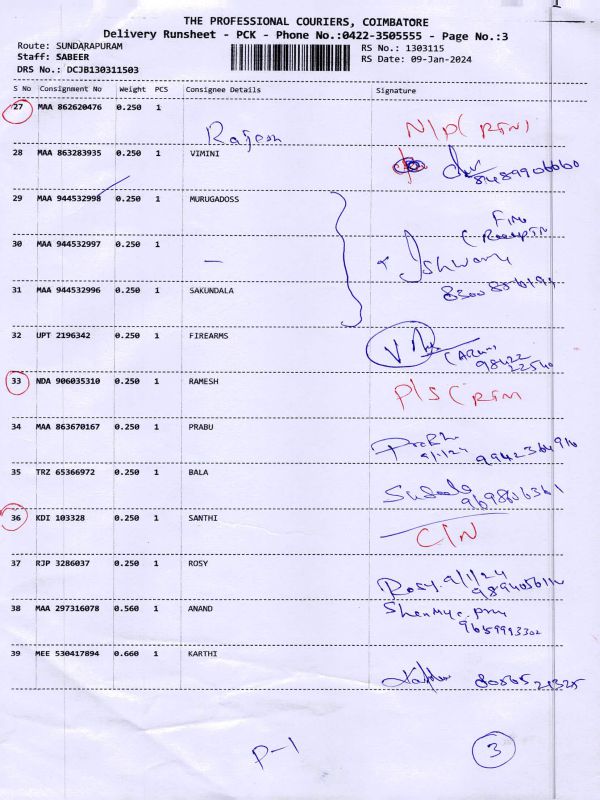 THE PROFESSIONAL COURIERS, COIMBATORE
Delivery Runsheet - PCK - Phone No.:0422-3505555 - Page No.:3
Route: SUNDARAPURAM RS No.: 1303115
Staff: SABEER RS Date: 09-Jan-2024
DRS No.: DCJB130311503
S No Consignment No Weight PCS Consignee Details Signature
27 MAA 862620476 0.250 1
Rajesh N/P (RTN)
28 MAA 863283935 0.250 1 VIMINI
8489906660
29 MAA 944532998 0.250 1 MURUGADOSS
30 MAA 944532997 0.250 1 —
Ishwarya
31 MAA 944532996 0.250 1 SAKUNDALA
32 UPT 2196342 0.250 1 FIREARMS
(Arun)
98422
22540
33 NDA 906035310 0.250 1 RAMESH
P/S (RTN
34 MAA 863670167 0.250 1 PRABU
9/1/24
35 TRZ 65366972 0.250 1 BALA
36 KDI 103328 0.250 1 SANTHI
C/N
37 RJP 3286037 0.250 1 ROSY
Rosy. 9/1/24
38 MAA 297316078 0.560 1 ANAND
9659993302
39 MEE 530417894 0.660 1 KARTHI
80565 21325
P-1 3